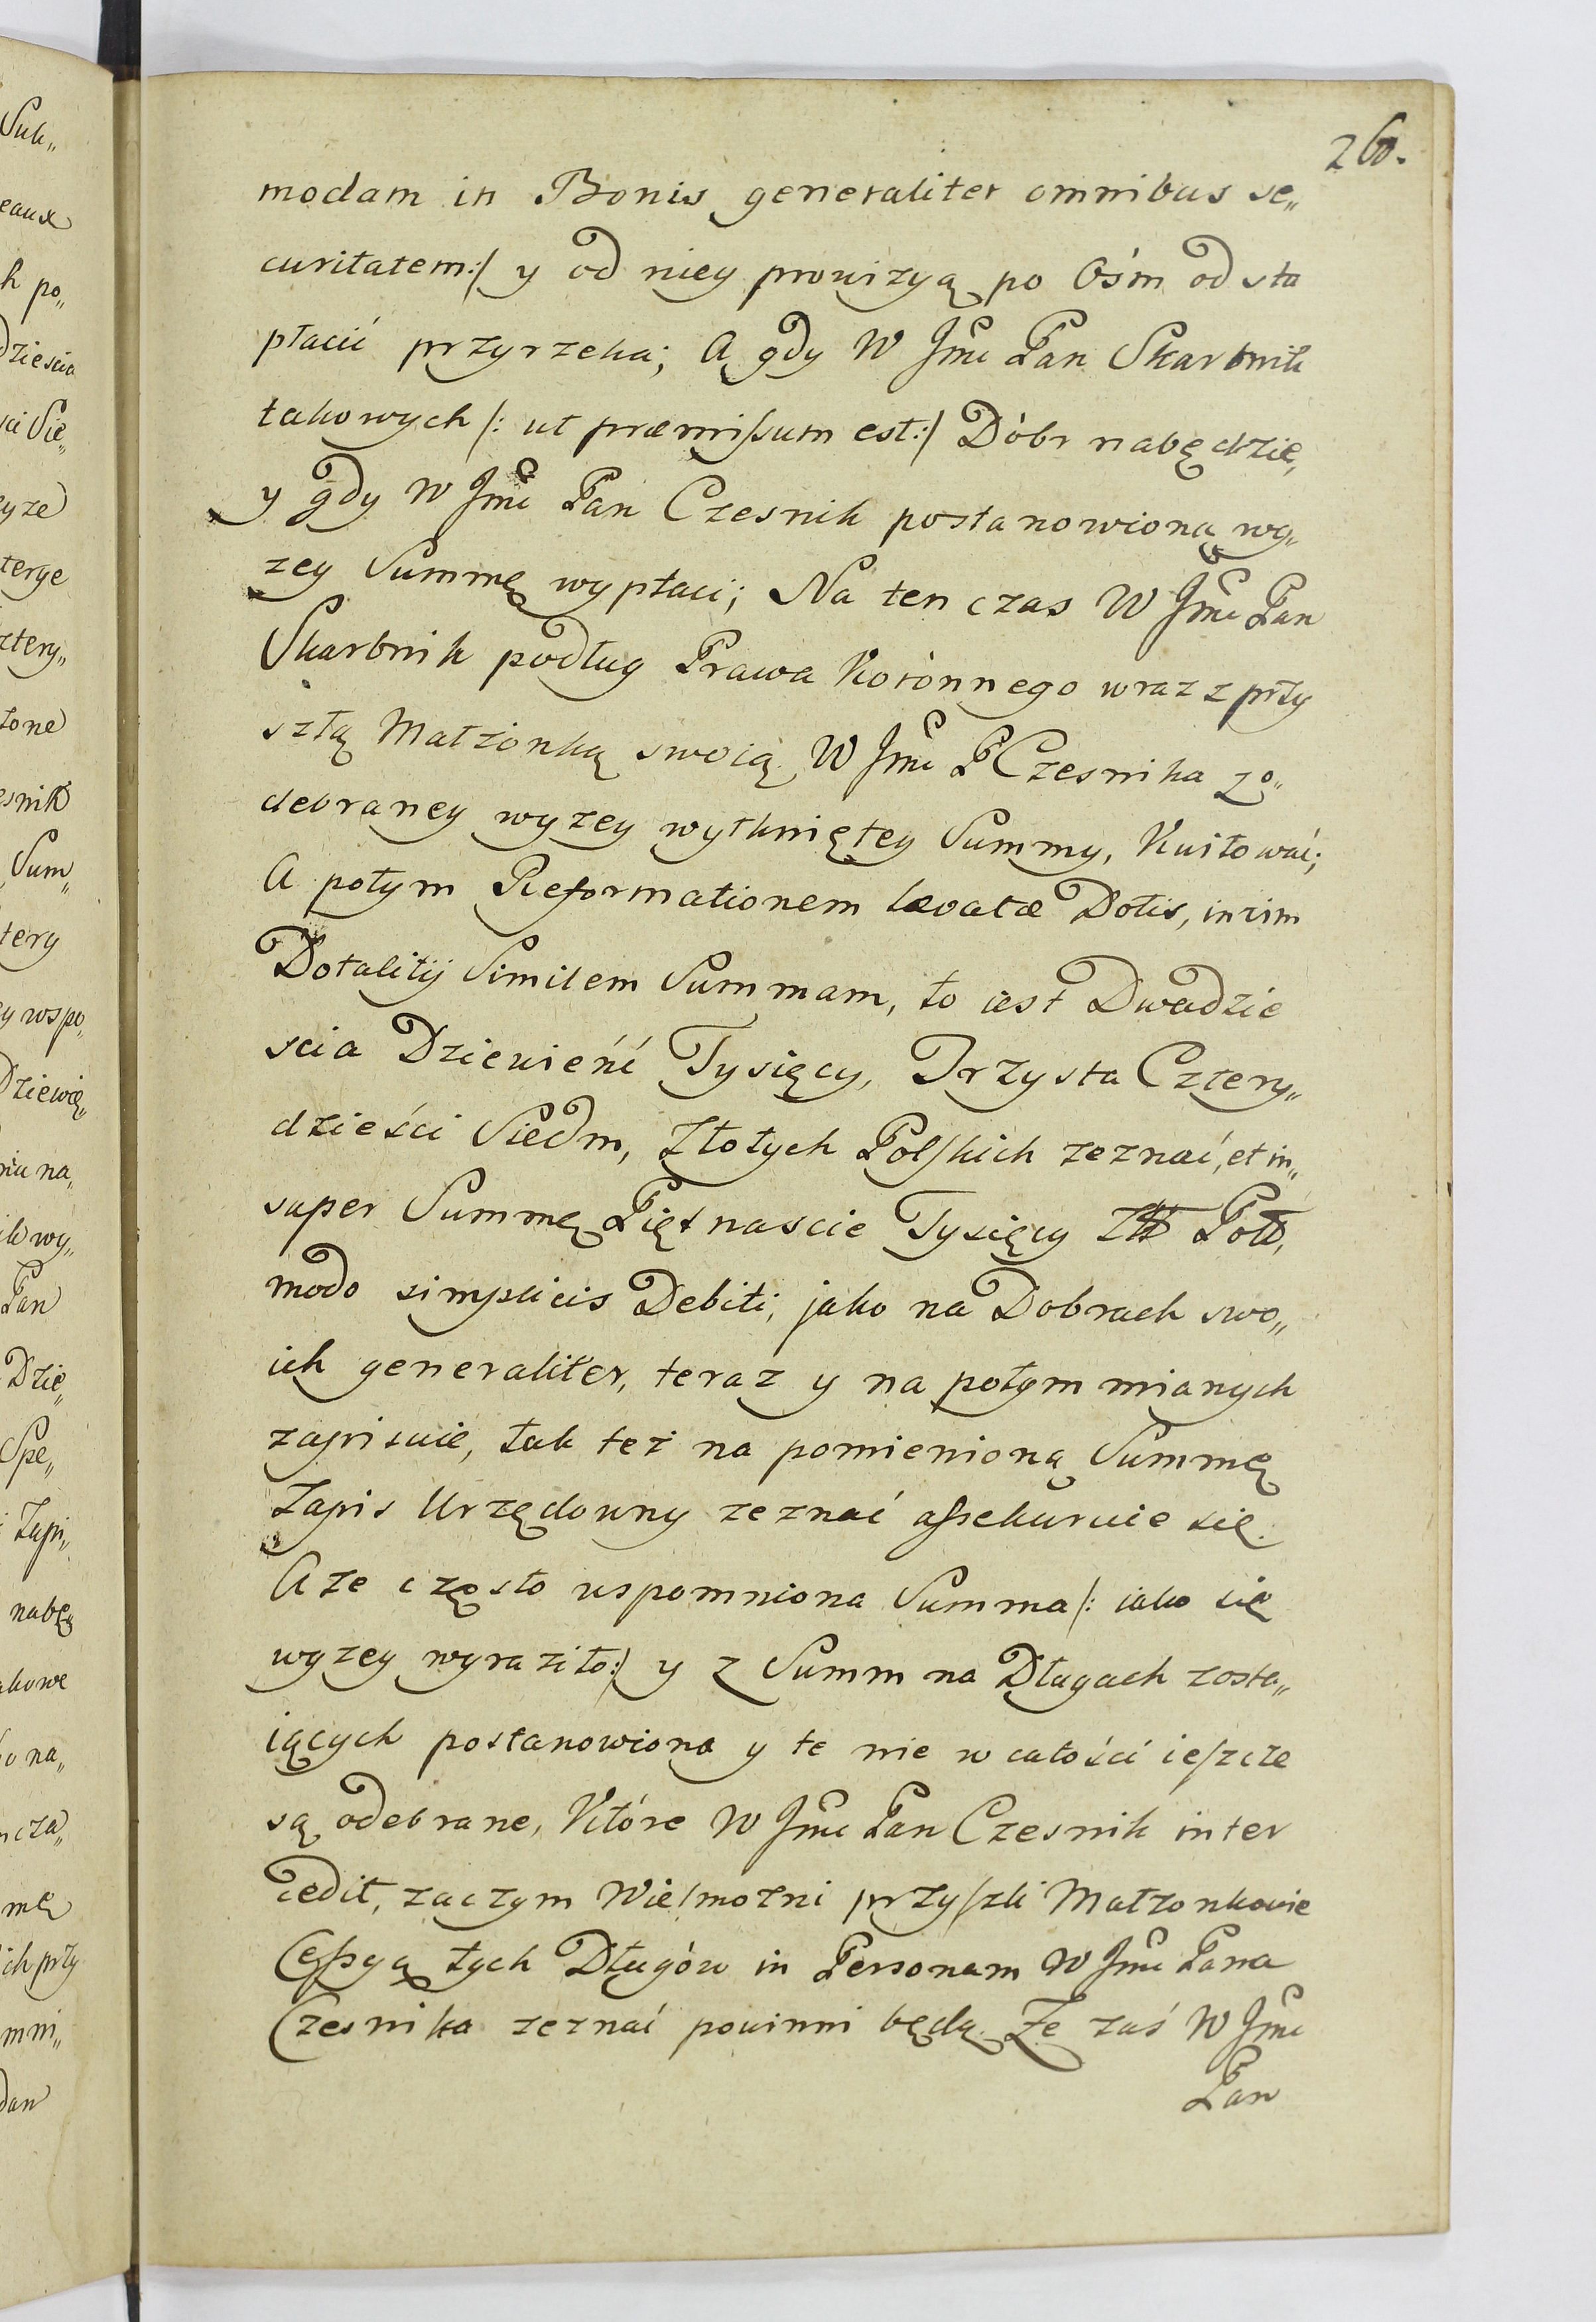 260.
modam in Bonis generaliter omnibus se„
curitatem:/ y od niey prowizyą po Ośm od sta
płacić przyrzeka; A gdy W Jmć Pan Skarbnik
takowych /: ut præmissum est:/ Dóbr nabędzie,
y gdy W Jmć Pan Czesnik postanowioną wy„
zey Summę wypłaci; Na ten czas W Jmć Pan
Skarbnik podług Prawa Koronnego wraz z przy
szłą Małzonką swoią W Jmć P Czesnika zo„
debraney wyzey wytknięтey Summy, Kwitować;
A potym Reformationem levatæ Dotis, in vim
Dotalitij Similem Summam, to iest Dwadzie
scia Dziewieńć Tysięcy, Trzysta Cztery„
dzieści Siedm, Złotych Polskich zeznać, et in„
super Summę Piętnascie Tysięcy Złł Poll,
modo simplicis Debiti, jako na Dobrach swo„
ich generaliter, teraz y na potym mianych
zapisuie, tak też na pomienioną Summę
Zapis Urzędowny zeznać assekuruie się.
A ze często wspomniona Summa /: iako się
wyzey wyraziło:/ y z Summ na Długach zosta„
iących postanowiona y te nie w całości ieszcze
są odebrane, Które W Jmć Pan Czesnik inter
cedit, zaczym Wielmozni przyszli Małzonkowie
Cessyą tych Długów in Personam W Jmć Pana
Czesnika zeznać powinni będą. Ze zaś W Jmć
Pan